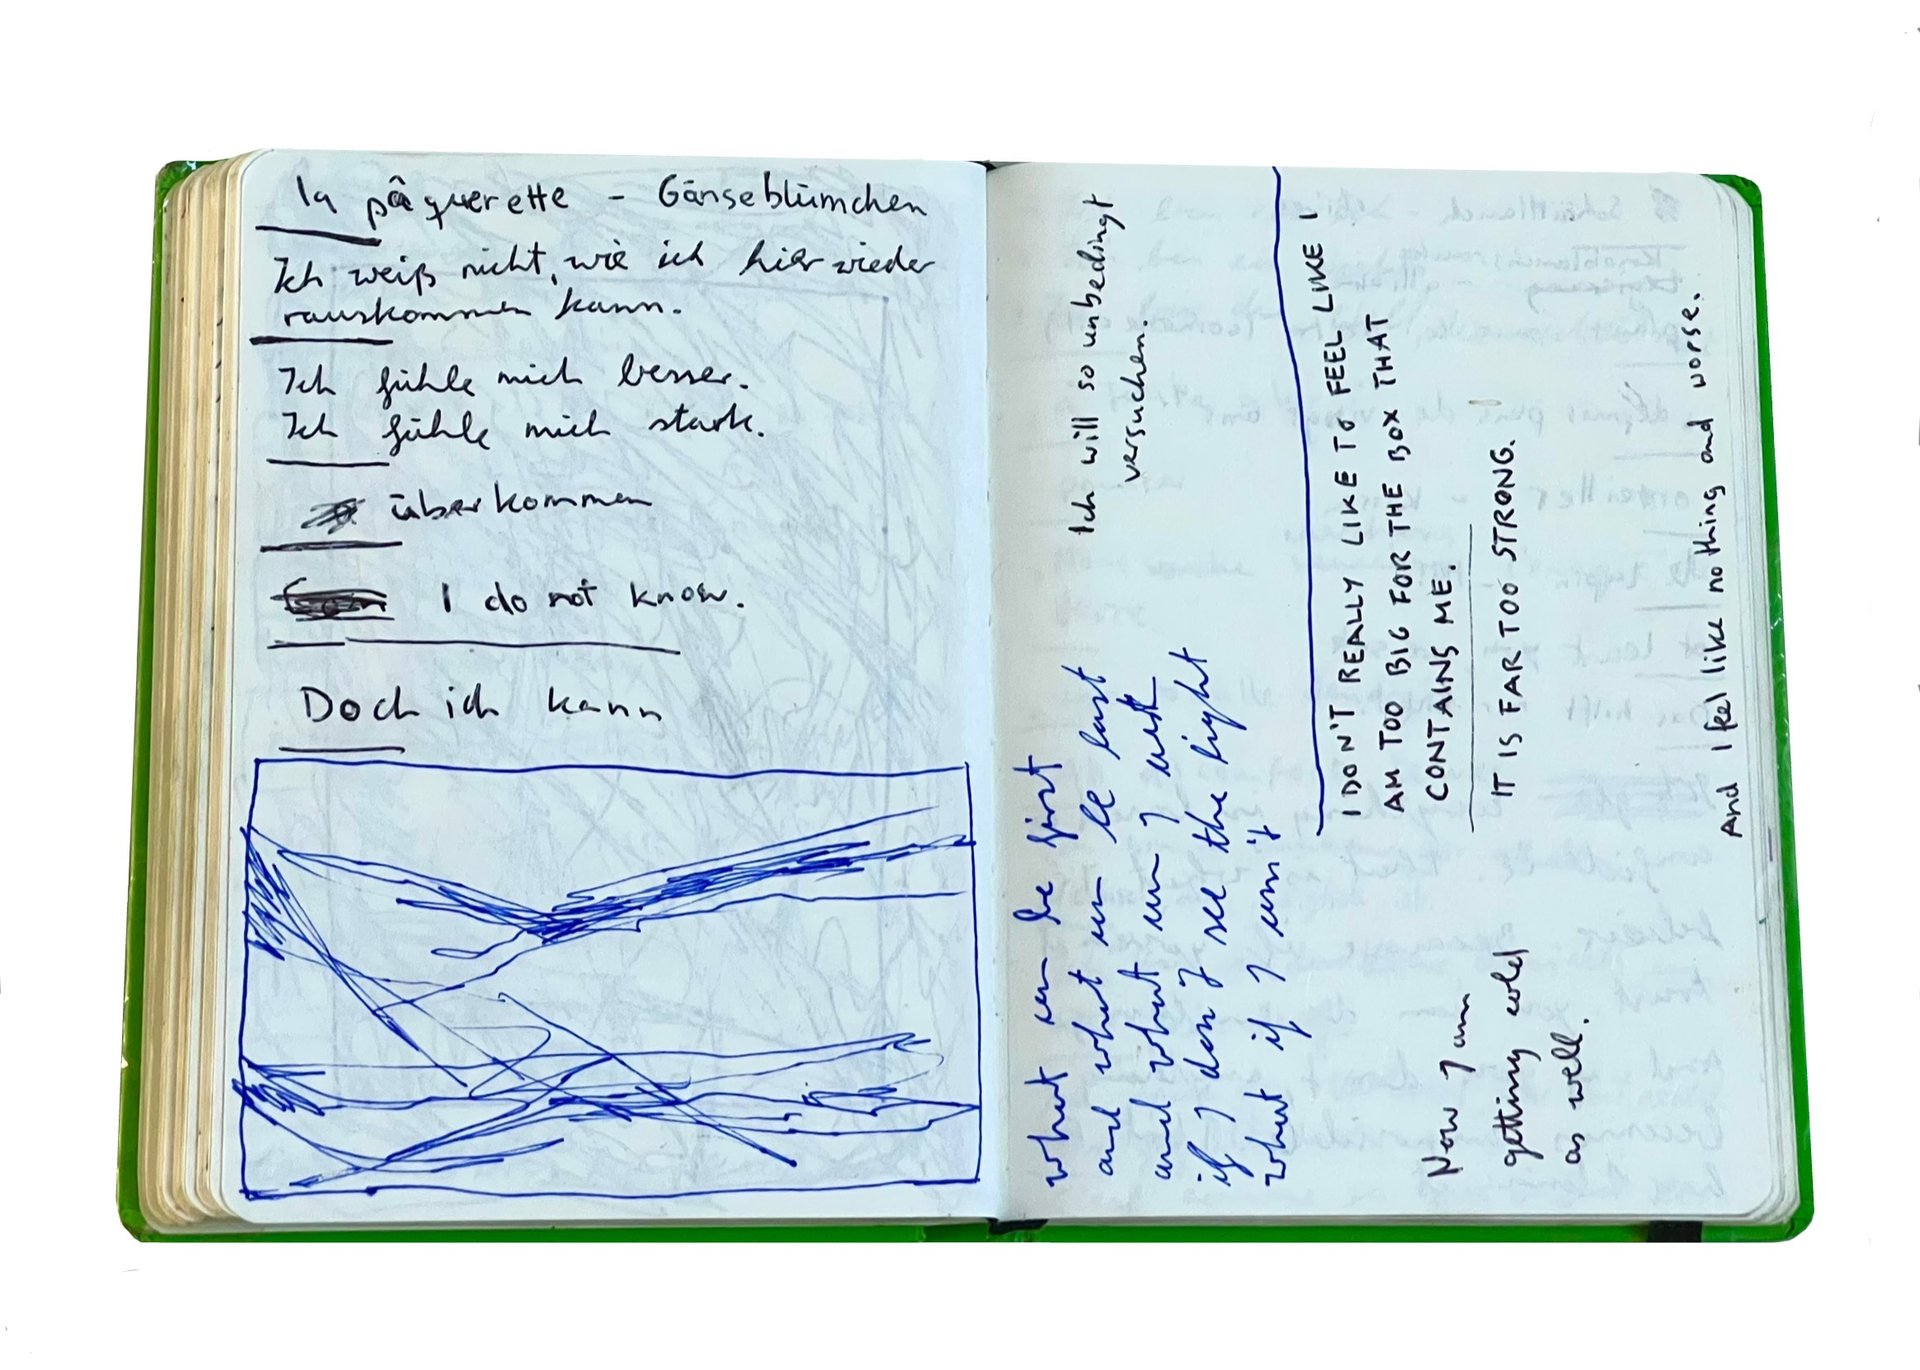 la pâquerette – Gänseblümchen
Ich weiß nicht, wie ich hier wieder
rauskommen kann.
Ich fühle mich besser.
Ich fühle mich stark.
überkommen
I do not know.
Doch ich kann
Ich will so unbedingt
versuchen.
what can be first
and what can be last
and what can I wish
if I don't see the light
what if I can't
I DON'T REALLY LIKE TO FEEL LIKE I
AM TOO BIG FOR THE BOX THAT
CONTAINS ME.
IT IS FAR TOO STRONG.
Now I am
getting cold
as well.
And I feel like nothing and worse.